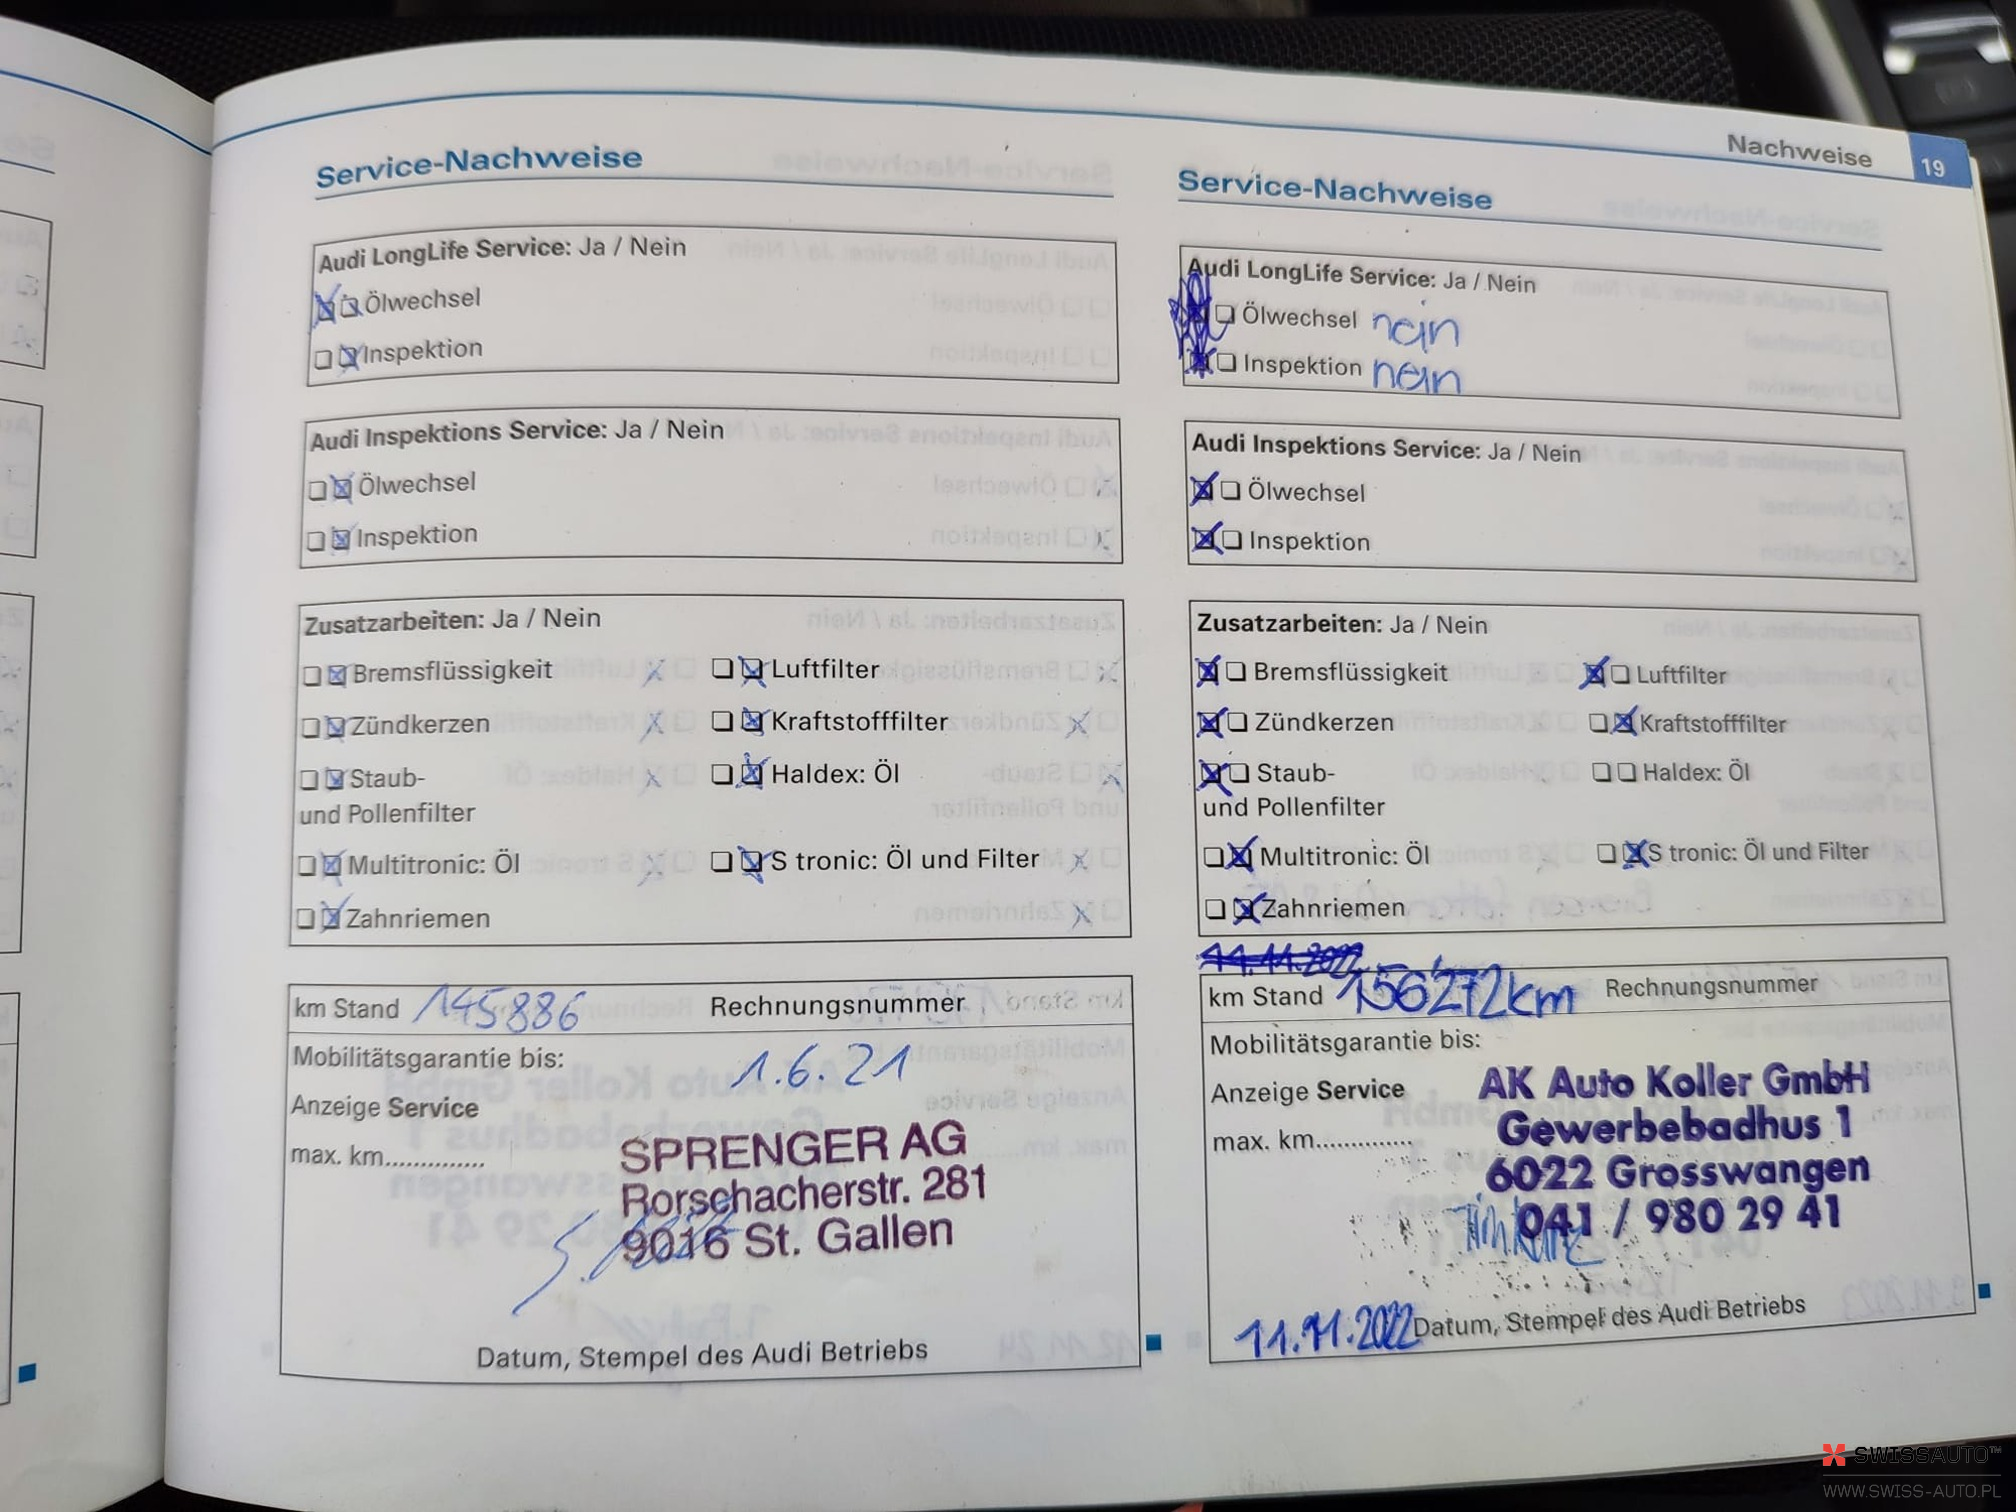 Nachweise 19
Service-Nachweise
Audi LongLife Service: Ja / Nein
Ölwechsel
Inspektion
Audi Inspektions Service: Ja / Nein
Ölwechsel
Inspektion
Zusatzarbeiten: Ja / Nein
Bremsflüssigkeit Luftfilter
Zündkerzen Kraftstofffilter
Staub- Haldex: Öl
und Pollenfilter
Multitronic: Öl S tronic: Öl und Filter
Zahnriemen
km Stand 145886 Rechnungsnummer
Mobilitätsgarantie bis: 1.6.21
Anzeige Service
max. km..............
SPRENGER AG
Rorschacherstr. 281
9016 St. Gallen
Datum, Stempel des Audi Betriebs
Service-Nachweise
Audi LongLife Service: Ja / Nein
Ölwechsel nein
Inspektion nein
Audi Inspektions Service: Ja / Nein
Ölwechsel
Inspektion
Zusatzarbeiten: Ja / Nein
Bremsflüssigkeit Luftfilter
Zündkerzen Kraftstofffilter
Staub- Haldex: Öl
und Pollenfilter
Multitronic: Öl S tronic: Öl und Filter
Zahnriemen
11.11.2022
km Stand 156'272km Rechnungsnummer
Mobilitätsgarantie bis:
Anzeige Service
max. km..............
AK Auto Koller GmbH
Gewerbebadhus 1
6022 Grosswangen
041 / 980 29 41
11.11.2022 Datum, Stempel des Audi Betriebs
SWISSAUTO™
WWW.SWISS-AUTO.PL